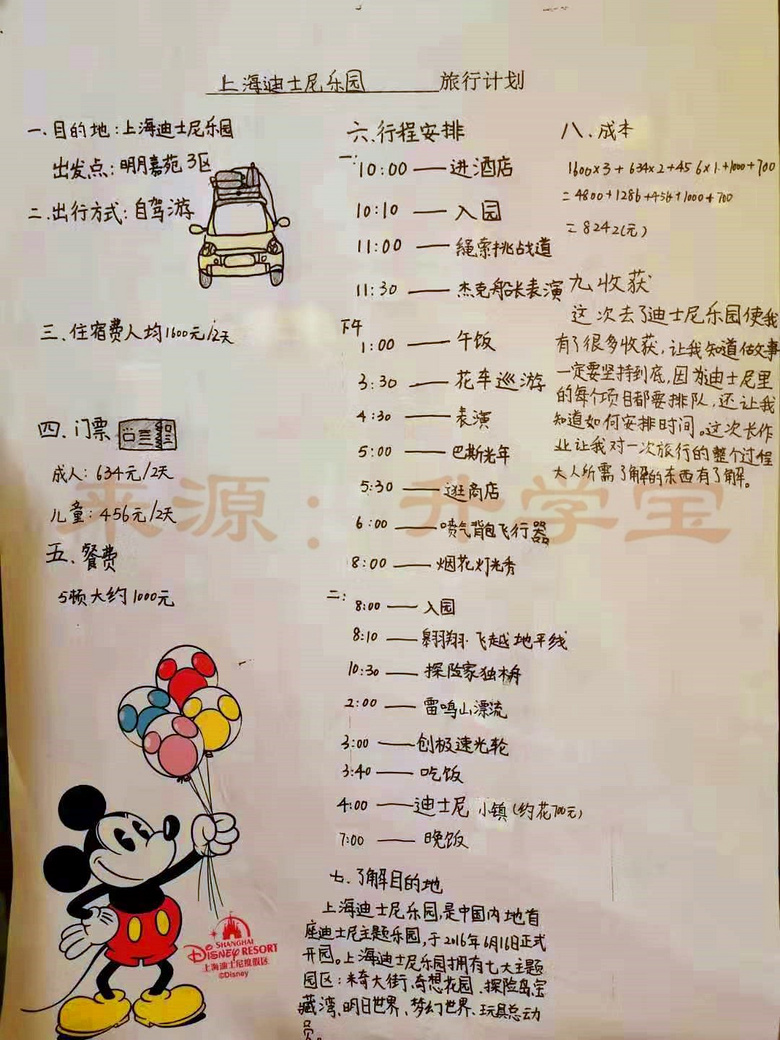 上海迪士尼乐园 旅行计划
一、目的地:上海迪士尼乐园
出发点:明月嘉苑 3区
二、出行方式:自驾游
三、住宿费人均1600元/2天
四、门票
成人:634元/2天
儿童:456元/2天
五、餐费
5顿大约1000元
六、行程安排
一:
10:00——进酒店
10:10——入园
11:00——绳索挑战道
11:30——杰克船长表演
下午
1:00——午饭
3:30——花车巡游
4:30——表演
5:00——巴斯光年
5:30——逛商店
6:00——喷气背包飞行器
8:00——烟花灯光秀
二:
8:00——入园
8:10——翱翔·飞越地平线
10:30——探险家独木舟
2:00——雷鸣山漂流
3:00——创极速光轮
3:40——吃饭
4:00——迪士尼 小镇(约花700元)
7:00——晚饭
七、了解目的地
上海迪士尼乐园,是中国内地首
座迪士尼主题乐园,于2016年6月16日正式
开园。上海迪士尼乐园拥有七大主题
园区:米奇大街、奇想花园、探险岛、宝
藏湾、明日世界、梦幻世界、玩具总动
员。
八、成本
1600×3+634×2+456×1+1000+700
=4800+1286+456+1000+700
=8242(元)
九收获
这次去了迪士尼乐园使我
有了很多收获,让我知道做故事
一定要坚持到底,因为迪士尼里
的每个项目都要排队,还让我
知道如何安排时间。这次长作
业让我对一次旅行的整个过程
大人所需了解的东西有了解。
来源:升学宝
SHANGHAI
DISNEY RESORT
上海迪士尼度假区
©Disney